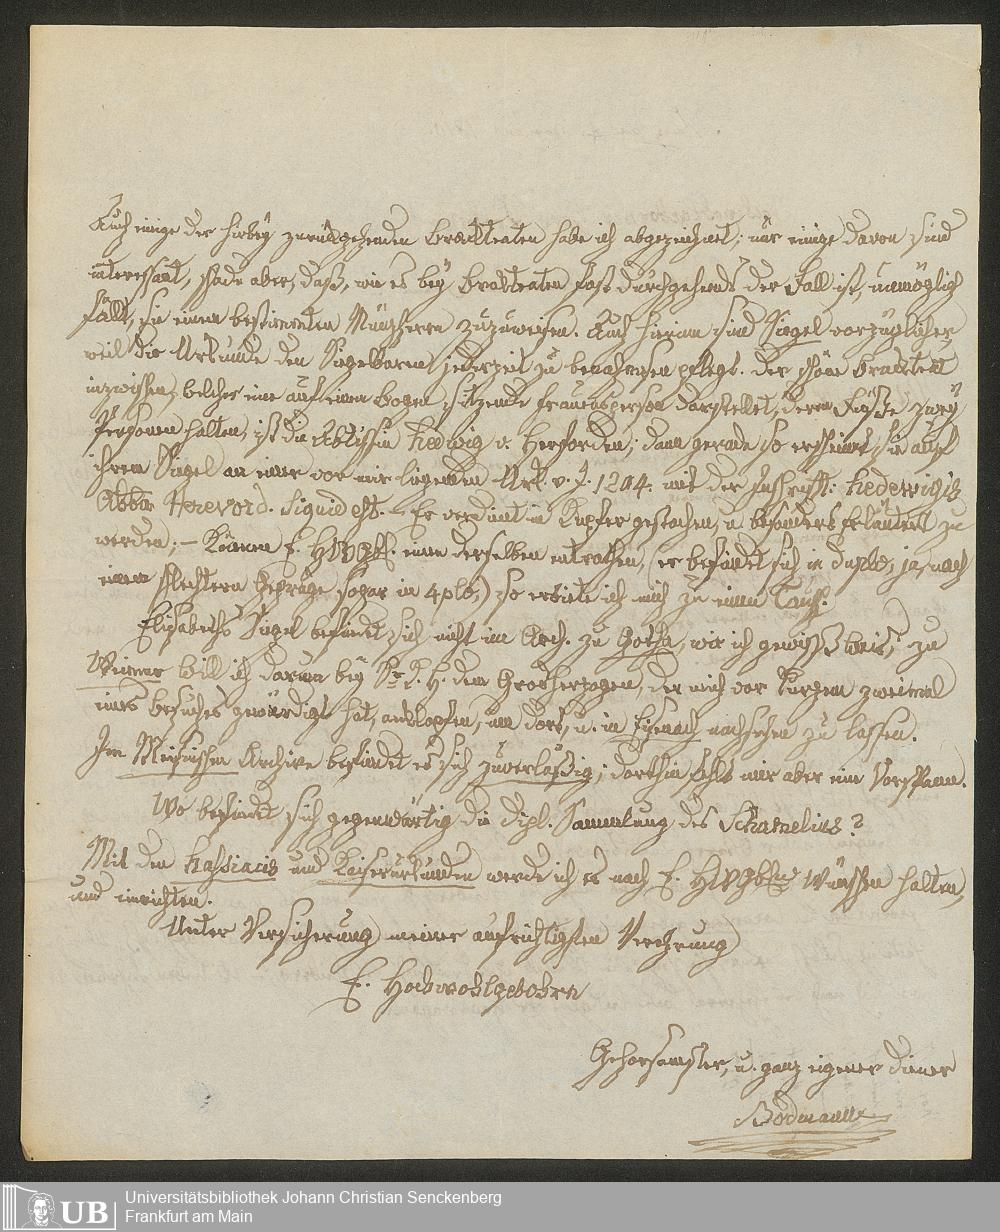 Auch einige der hirbey zurückgehenden Bracteaten habe ich abgezeichnet; nur einige davon sind
interessant, schade aber, daß, wie es bey Bracteaten fast durchgehends der Fall ist, unmöglich
fällt, sie einem bestimmten Münzherrn zuzuweisen. Auch hierinn sind Siegel vorzüglicher,
weil die Urkunde den Siegelherrn jederzeit zu benahmsen pflegt. Der schöne Bracteat
inzwischen, welcher eine auf einem Bogen sitzende Frauensperson darstellet, deren Füße zwey
Personen halten, ist die Äbtissin Hedwig v. Herforden; dann gerade so erscheint sie auf
ihrem Siegel an einer vor mir liegenden Urk. v. J. 1244. mit der Inschrift: Hedewigis
Abba Herevord. siquid est. Er verdient in Kupfer gestochen, u. besonders erläutert zu
werden; – Können E. HWgb. einen derselben entrathen, (er befindet sich in duplo, ja, nach
einem schlechtern Gepräge sogar in 4plo,) so erbiete ich mich zu einem Tausch.
Elisabeths Siegel befindet sich nicht im Arch. zu Gotha, wie ich gewiß weis; zu
Weimar will ich darum bey Sr. K. H. dem Grosherzogen, der mich vor Kurzem zweimal
eines Besuches gewürdigt hat, anklopfen, um dort, u. in Eisenach nachsehen zu lassen.
Im Meisnischen Archive befindet es sich zuverläßig; dorthin fehlt mir aber ein Vorspann.
Wo befindet sich gegenwärtig die dipl. Sammlung des Schamelius?
Mit den Hassiacis und Kaiserurkunden werde ich es nach E. HWgb. Wünschen halten,
und einrichten.
Unter Versicherung meiner aufrichtigsten Verehrung
E. Hochwohlgebohren
Gehorsamster, u. ganz eigener Diener
Bodmann
UB
Universitätsbibliothek Johann Christian Senckenberg
Frankfurt am Main